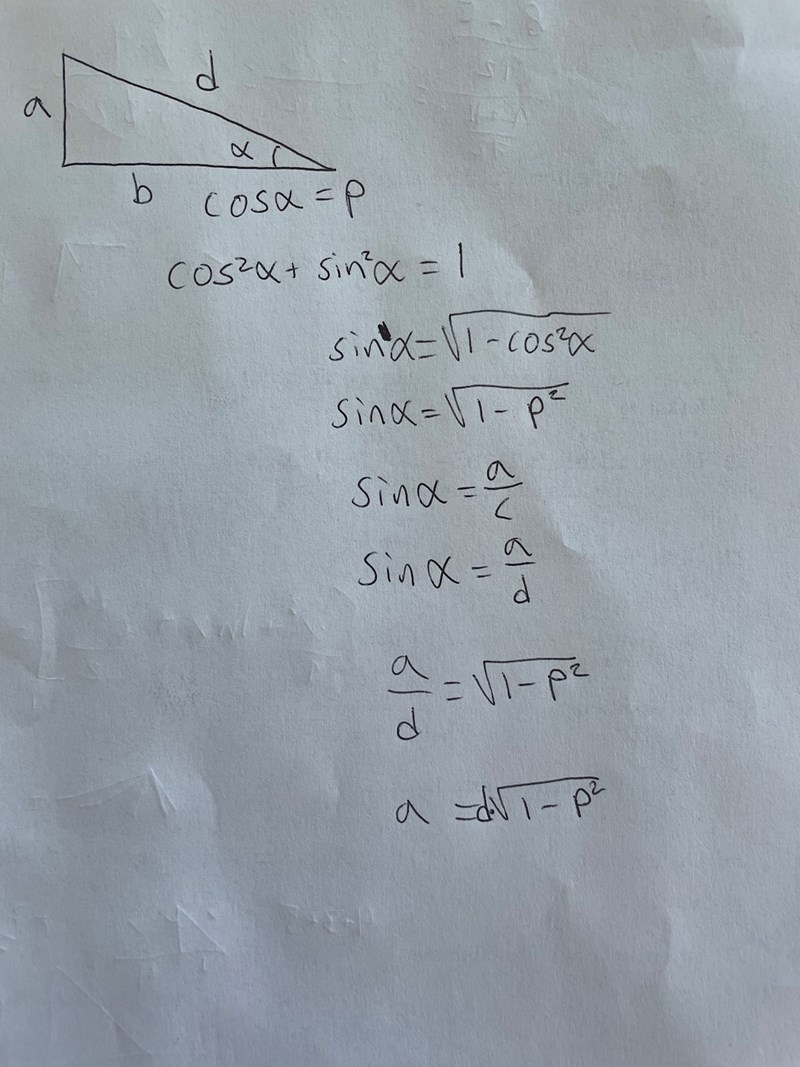 a
d
α
b
cosα = p
cos²α + sin²α = 1
sinα = √1 - cos²α
sinα = √1 - p²
sinα = a/c
sinα = a/d
a/d = √1 - p²
a = d·√1 - p²